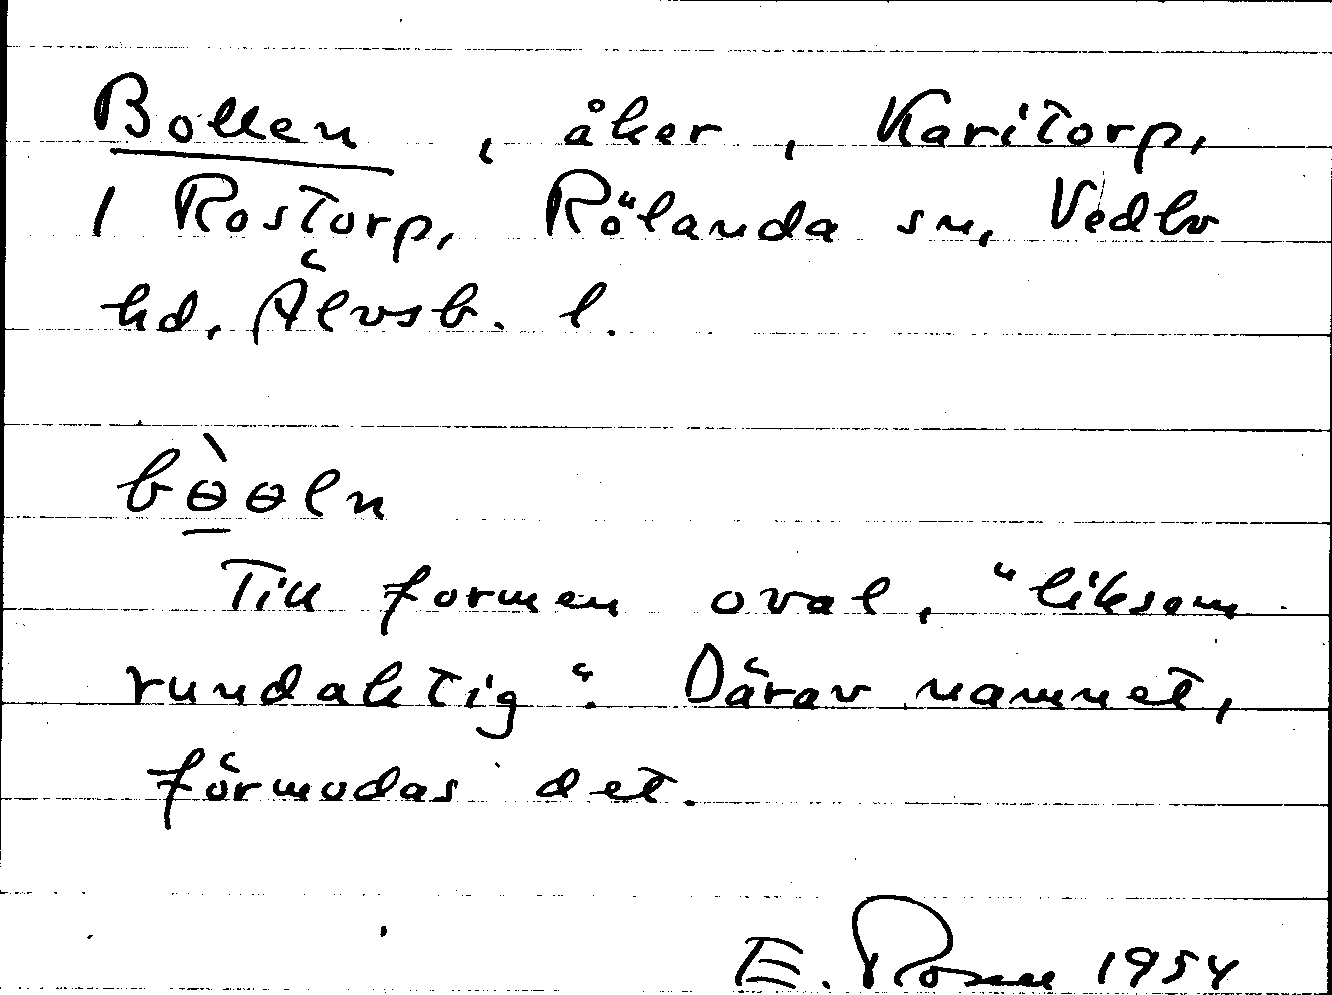 Bollen, åker, Karitorp,
1 Rostorp, Rölanda sn, Vedbo
hd, Älvsb. l.
bɵ̀ɵln
Till formen oval, "liksom
rundaktig". Därav namnet,
förmodas det.
E. Rosen 1954